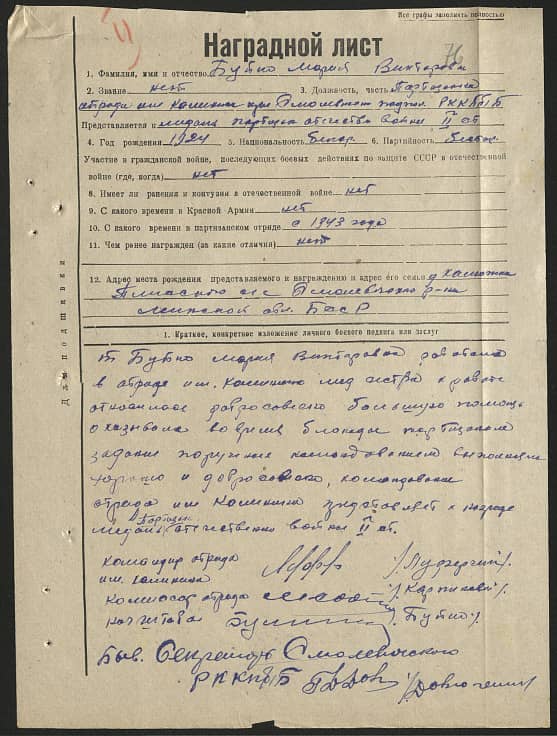 Все графы заполнять полностью
Наградной лист
1. Фамилия, имя и отчество Бутко Мария Викторовна
2. Звание нет 3. Должность, часть Партизанка
отряда им Калинина при Смолевичском РККП/б/Б
Представляется к медали партизана отечества войны II ст
4. Год рождения 1924 5. Национальность белор. 6. Партийность беспар.
Участие в гражданской войне, последующих боевых действиях по защите СССР и отечественной
войне (где, когда) нет
8. Имеет ли ранения и контузии в отечественной войне нет
9. С какого времени в Красной Армии нет
10. С какого времени в партизанском отряде с 1943 года
11. Чем ранее награжден (за какие отличия) нет
12. Адрес места рождения представляемого к награждению и адрес его семьи д
с/с Смолевичского р-на
Минской обл. БССР
Для подшивки
1. Краткое, конкретное изложение личного боевого подвига или заслуг
т Бутко Мария Викторовна работала
в отряде им. Калинина мед сестра к работе
большую помощь
оказывала во время блокады партизанам
задание командованием выполняла
хорошо и командование
отряда им Калинина представляет к награде
медаль Партизан отечественно войны II ст.
Командир отряда
им. Калинина
Комиссар отряда
нач штаба /Бутко/.
Быв. Секретарь Смолевичского
РККП/б/Б